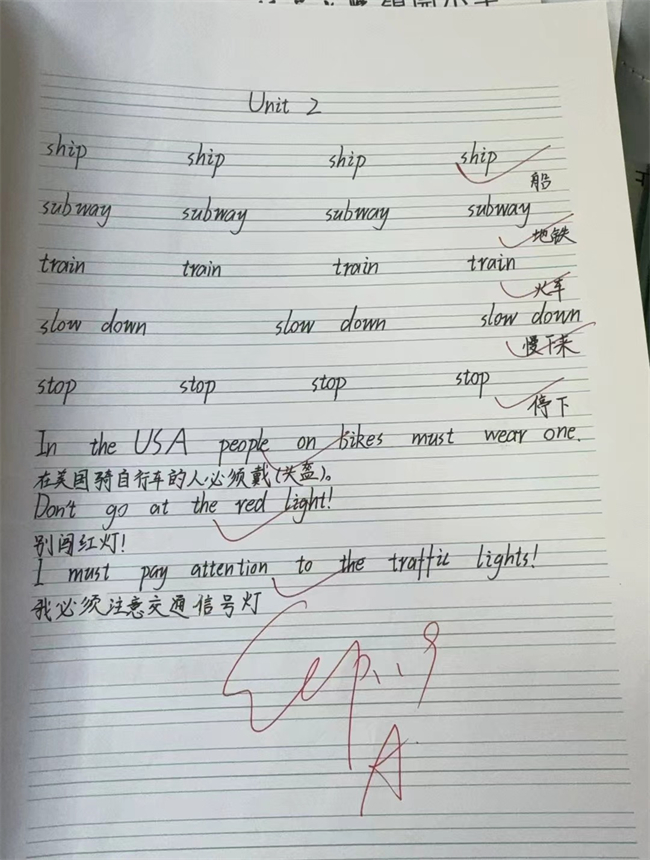 Unit 2
ship ship ship ship
船
subway subway subway subway
地铁
train train train train
火车
slow down slow down slow down
慢下来
stop stop stop stop
停下
In the USA people on bikes must wear one.
在美国骑自行车的人必须戴(头盔)。
Don't go at the red light!
别闯红灯!
I must pay attention to the traffic lights!
我必须注意交通信号灯
Sep.19
A